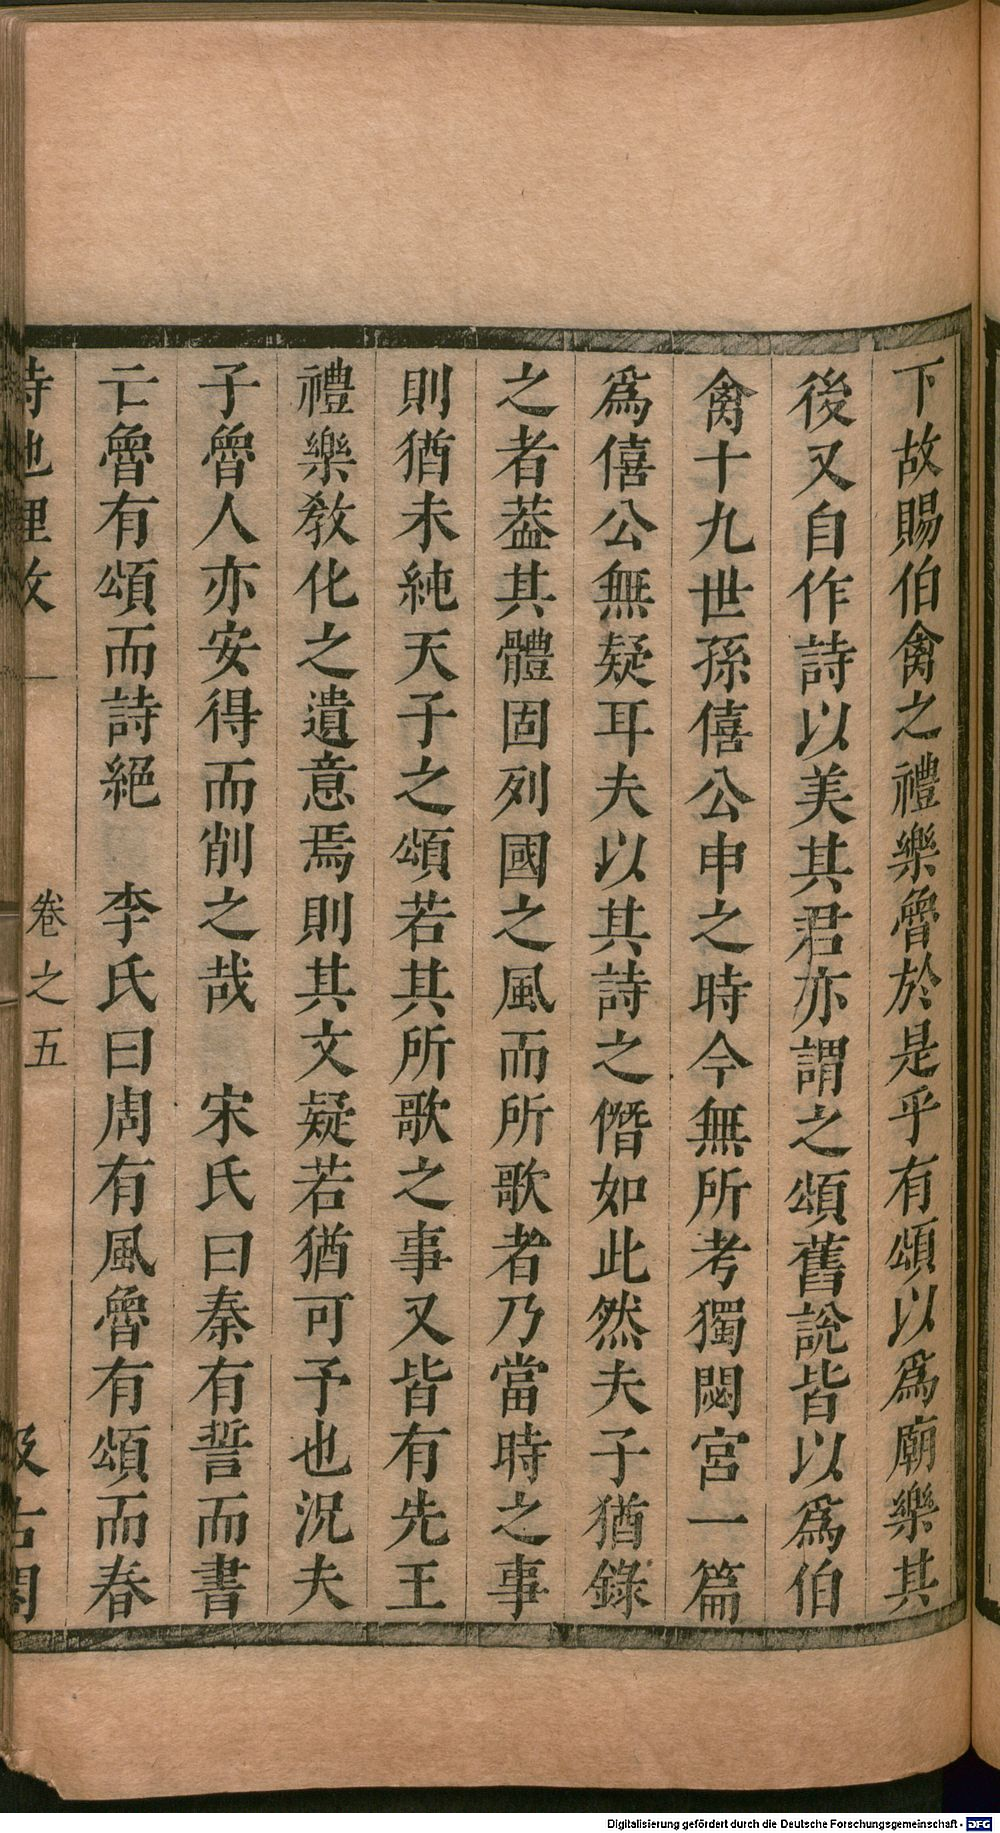 下故賜伯禽之禮樂魯於是乎有頌以爲廟樂其
後又自作詩以美其君亦謂之頌舊說皆以爲伯
禽十九世孫僖公申之時今無所考獨閟宮一篇
爲僖公無疑耳夫以其詩之僭如此然夫子猶錄
之者葢其體固列國之風而所歌者乃當時之事
則猶未純天子之頌若其所歌之事又皆有先王
禮樂敎化之遺意焉則其文疑若猶可予也況夫
子魯人亦安得而削之哉　宋氏曰秦有誓而書
亡魯有頌而詩絕　李氏曰周有風魯有頌而春
詩地理攷　卷之五　汲古閣
Digitalisierung gefördert durch die Deutsche Forschungsgemeinschaft - DFG